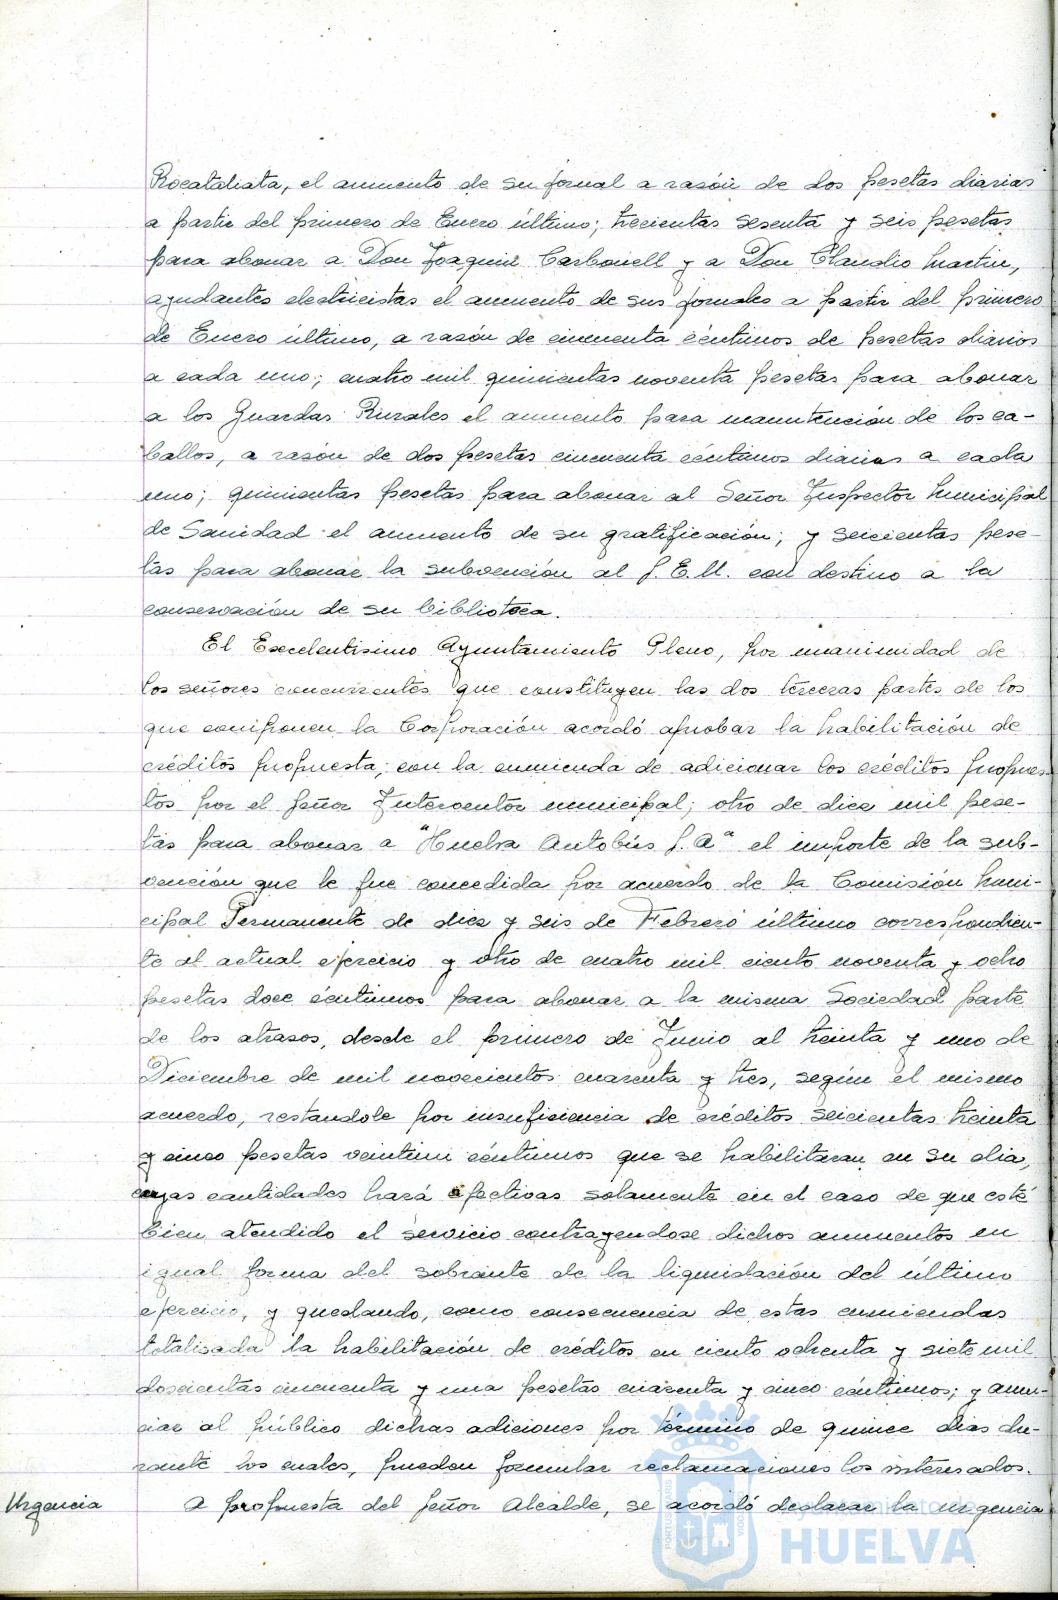 Rocataliata, el aumento de su jornal a razón de dos pesetas diarias
a partir del primero de Enero último; trecientas sesenta y seis pesetas
para abonar a Don Joaquin Carbonell y a Don Claudio Martin,
ayudantes electricistas el aumento de sus jornales a partir del primero
de Enero último, a razón de cincuenta céntimos de pesetas diarios
a cada uno; cuatro mil quinientas noventa pesetas para abonar
a los Guardas Rurales el aumento para manutención de los ca-
ballos, a razón de dos pesetas cincuenta céntimos diarios a cada
uno; quinientas pesetas para abonar al Señor Inspector Municipal
de Sanidad el aumento de su gratificación; y seicientas pese-
tas para abonar la subvención al S.E.U. con destino a la
conservación de su biblioteca.
El Excelentisimo Ayuntamiento Pleno, por unanimidad de
los señores concurrentes que constituyen las dos terceras partes de los
que componen la Corporación acordó aprobar la habilitación de
créditos propuesta, con la enmienda de adicionar los créditos propues-
tos por el Señor Interventor municipal; otro de diez mil pese-
tas para abonar a "Huelva Autobús S.A" el importe de la sub-
vención que le fue concedida por acuerdo de la Comisión Muni-
cipal Permanente de diez y seis de Febrero último correspondien-
te al actual ejercicio y otro de cuatro mil ciento noventa y ocho
pesetas doce céntimos para abonar a la misma Sociedad parte
de los atrasos, desde el primero de Junio al treinta y uno de
Diciembre de mil novecientos cuarenta y tres, según el mismo
acuerdo, restandole por insuficiencia de créditos seicientas treinta
y cinco pesetas veintiun céntimos que se habilitaran en su dia,
cuyas cantidades hará efectivas solamente en el caso de que esté
bien atendido el servicio contrayendose dichos aumentos en
igual forma del sobrante de la liquidación del último
ejercicio, y quedando, como consecuencia de estas enmiendas
totalisada la habilitación de créditos en ciento ochenta y siete mil
doscientas cincuenta y una pesetas cuarenta y cinco céntimos; y anun-
ciar al público dichas adiciones por término de quince dias du-
rante los cuales, pueden formular reclamaciones los interesados.
Urgencia
A propuesta del Señor Alcalde, se acordó declarar la urgencia
Ayuntamiento de
HUELVA